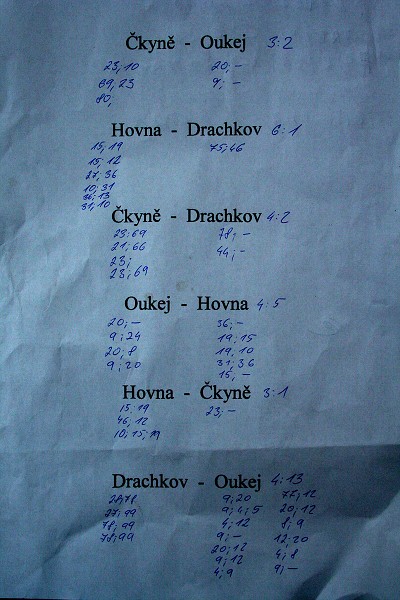 Čkyně - Oukej 3:2
23; 10 20; -
69; 23 9; -
80;
Hovna - Drachkov 6:1
15; 19 75; 46
15; 12
27; 36
10; 31
36; 13
31; 10
Čkyně - Drachkov 4:2
23; 69 78; -
21; 66 44; -
23;
23; 69
Oukej - Hovna 4:5
20; - 36; -
9; 24 19; 15
20; 8 19; 10
9; 20 31; 36
15; -
Hovna - Čkyně 3:1
15; 19 23; -
46; 12
10; 15; 19
Drachkov - Oukej 4:13
28; 78 9; 20 77; 12
27; 99 9; 4; 5 20; 12
78; 99 4; 12 8; 9
78; 99 9; - 12; 20
20; 12 4; 8
9; 12 9; -
4; 9